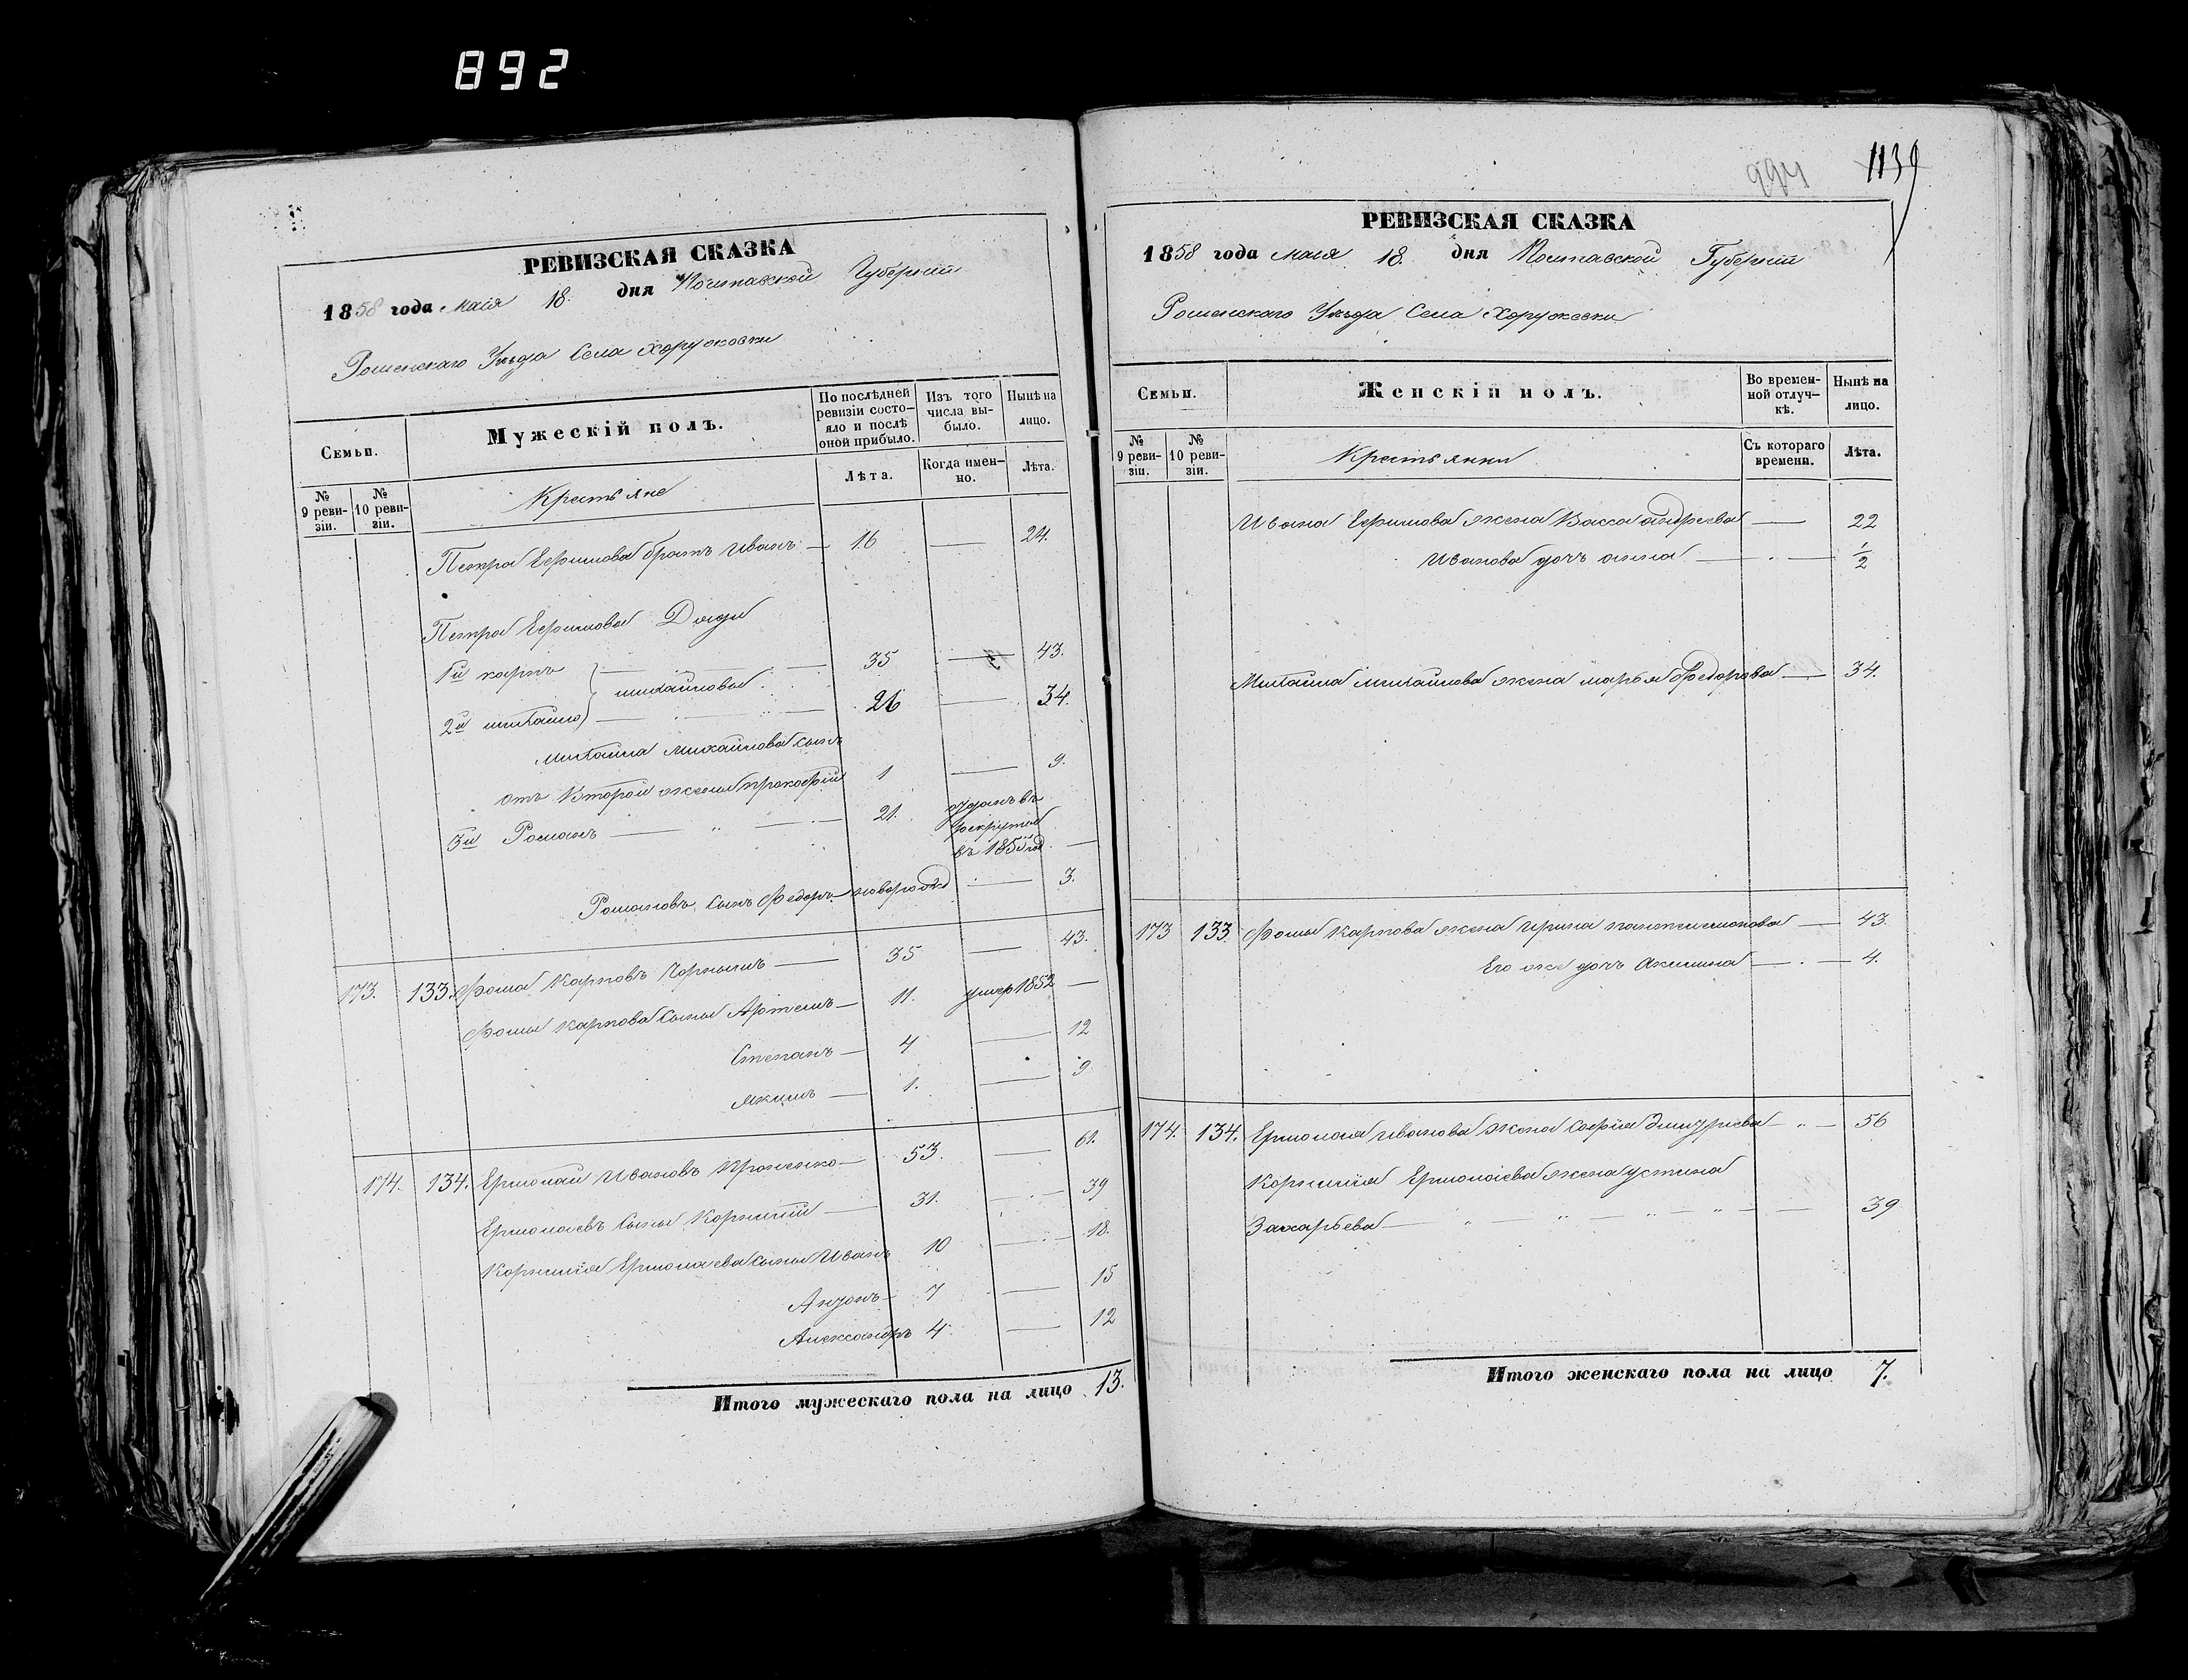 892
РЕВИЗСКАЯ СКАЗКА
1858 года маія 18. дня Полтавской Губерніи
Роменскаго Уѣзда Села Хоружовки
Семьи.
Мужескій полъ.
По послѣдней ревизіи состо-яло и послѣ оной прибыло.
Изъ того числа вы-было.
Нынѣ на лицо.
№ 9 реви-зіи.
№ 10 реви-зіи.
Крестьяне
Лѣта.
Когда имен-но.
Лѣта.
Петра Ефимова братъ Иванъ — 16 — 24.
Петра Ефимова Дяди
1й карпъ 35 — 43.
михайловы
2й михайло 26 — 34.
михаила михайлова сынъ
отъ Второй жены прокофій 1 — 9.
3й Романъ — 21. отданъ въ
рекруты
въ 1855 год. —
Романовъ сынъ Федоръ — новорожд — 3.
173. 133. Фома Карповъ Чорнышъ — 35 — 43.
Фомы карпова сыны Артемъ — 11. умер 1852 —
Степанъ — 4 — 12
якимъ — 1. — 9.
174. 134. Ермолай Ивановъ — 53. — 61.
Ермолаевъ сынъ Корнилій — 31. — 39
Корнилія Ермолаева сыны Иванъ 10 — 18.
Антонъ — 7 — 15
Александръ 4 — 12
Итого мужескаго пола на лицо 13.
994 1139
РЕВИЗСКАЯ СКАЗКА
1858 года маія 18. дня Полтавской Губерніи
Роменскаго Уѣзда Села Хоружовки
Семьи.
Женскій полъ.
Во времен-ной отлуч-кѣ.
Нынѣ на лицо.
№ 9 реви-зіи.
№ 10 реви-зіи.
Крестьянки
Съ котораго времени.
Лѣта.
Ивана Ефимова жена Васса андреева — 22
Иванова дочь анна — 1/2
Михаила михайлова жена марья Федорова — 34.
173 133 Фомы карпова жена ирина пантелимонова — 43.
Его же дочь Акилина — 4.
174. 134. Ермолая иванова жена софія — 56
Корнилія Ермолаева жена устина
Захарьева — 39
Итого женскаго пола на лицо 7.